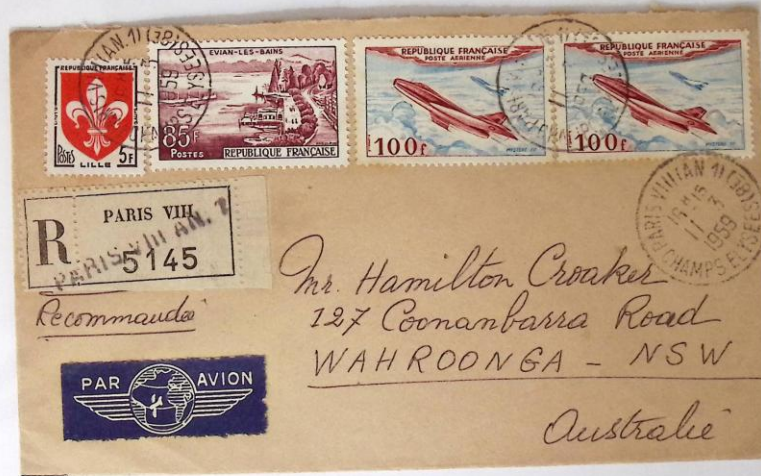 REPUBLIQUE FRANÇAISE
POSTES LILLE 5F
EVIAN-LES-BAINS
85F
POSTES REPUBLIQUE FRANÇAISE
REPUBLIQUE FRANÇAISE
POSTE AERIENNE
100F
REPUBLIQUE FRANÇAISE
POSTE AERIENNE
100F
PARIS VIII (AN. 1) (38)
16H15
11-3
1959
CHAMPS ELYSEES
R
PARIS VIII
PARIS VIII AN. 1
5145
Recommandée
Mr. Hamilton Croaker
127 Coonanbarra Road
WAHROONGA - NSW
Australie
PAR AVION